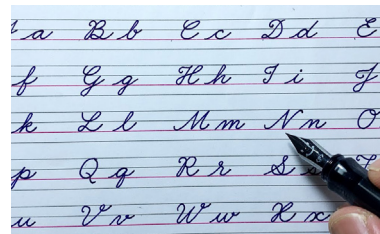 a B b C c D d E
f G g H h I i J
k L l M m N n O
p Q q R r S s
u V v W w X x